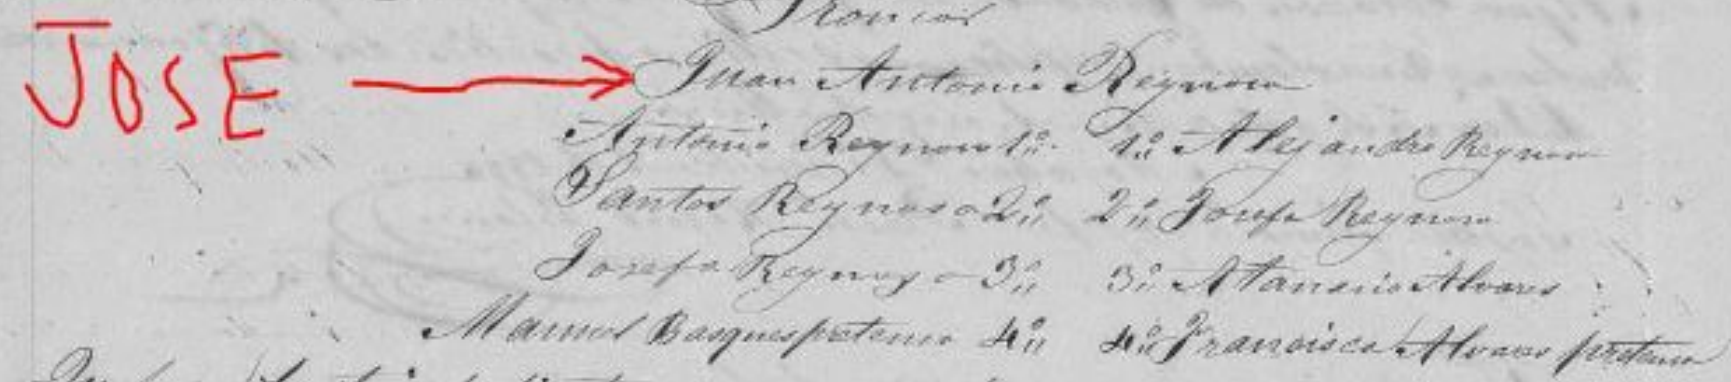 Troncos
JOSE
Juan Antonio Reynoso
Antonio Reynoso 1º 1º Alejandro Reynoso
Santos Reynoso 2º 2º Josefa Reynoso
Josefa Reynoso 3º 3º Atanacio Alvares
Manuel Basques pretenso 4º 4º Francisca Alvares pretensa